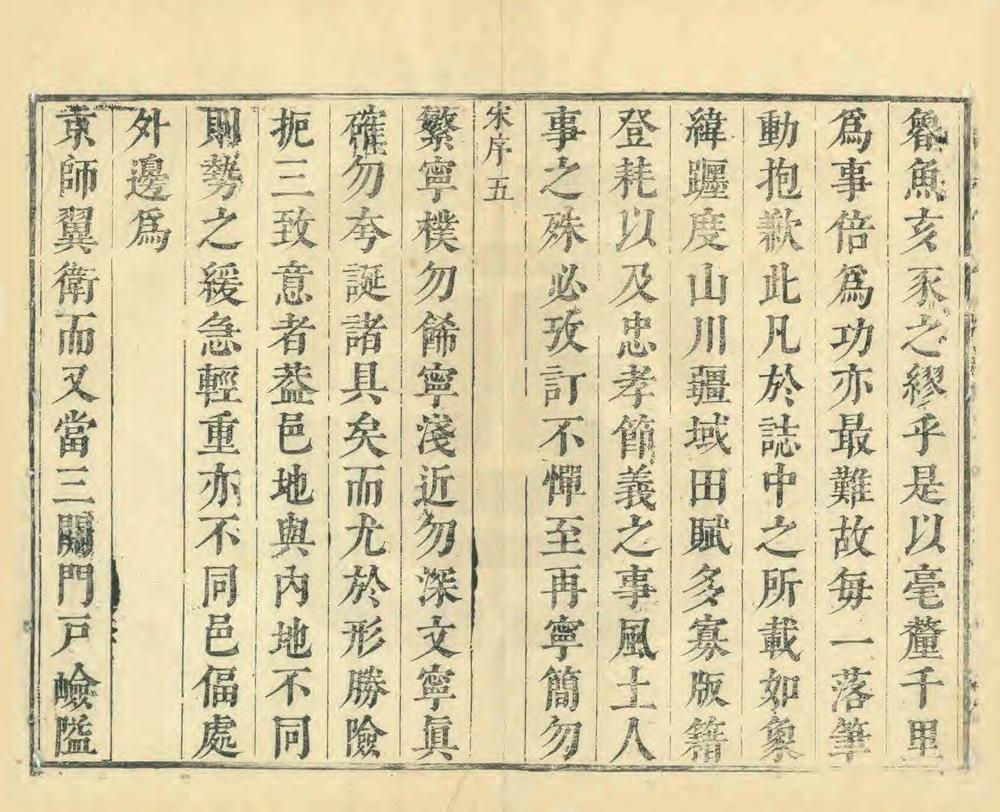 魯魚亥豕之繆乎是以毫釐千里
爲事倍爲功亦最難故每一落筆
動抱歉此凡於誌中之所載如象
緯躔度山川疆域田賦多寡版籍
登耗以及忠孝節義之事風土人
事之殊必攷訂不憚至再寧簡勿
宋序五
繁寧樸勿餙寧淺近勿深文寧眞
確勿夸誕諸具矣而尤於形勝險
扼三致意者葢邑地與內地不同
則勢之緩急輕重亦不同邑偪處
外邊爲
京師翼衛而又當三關門戶嶮隘